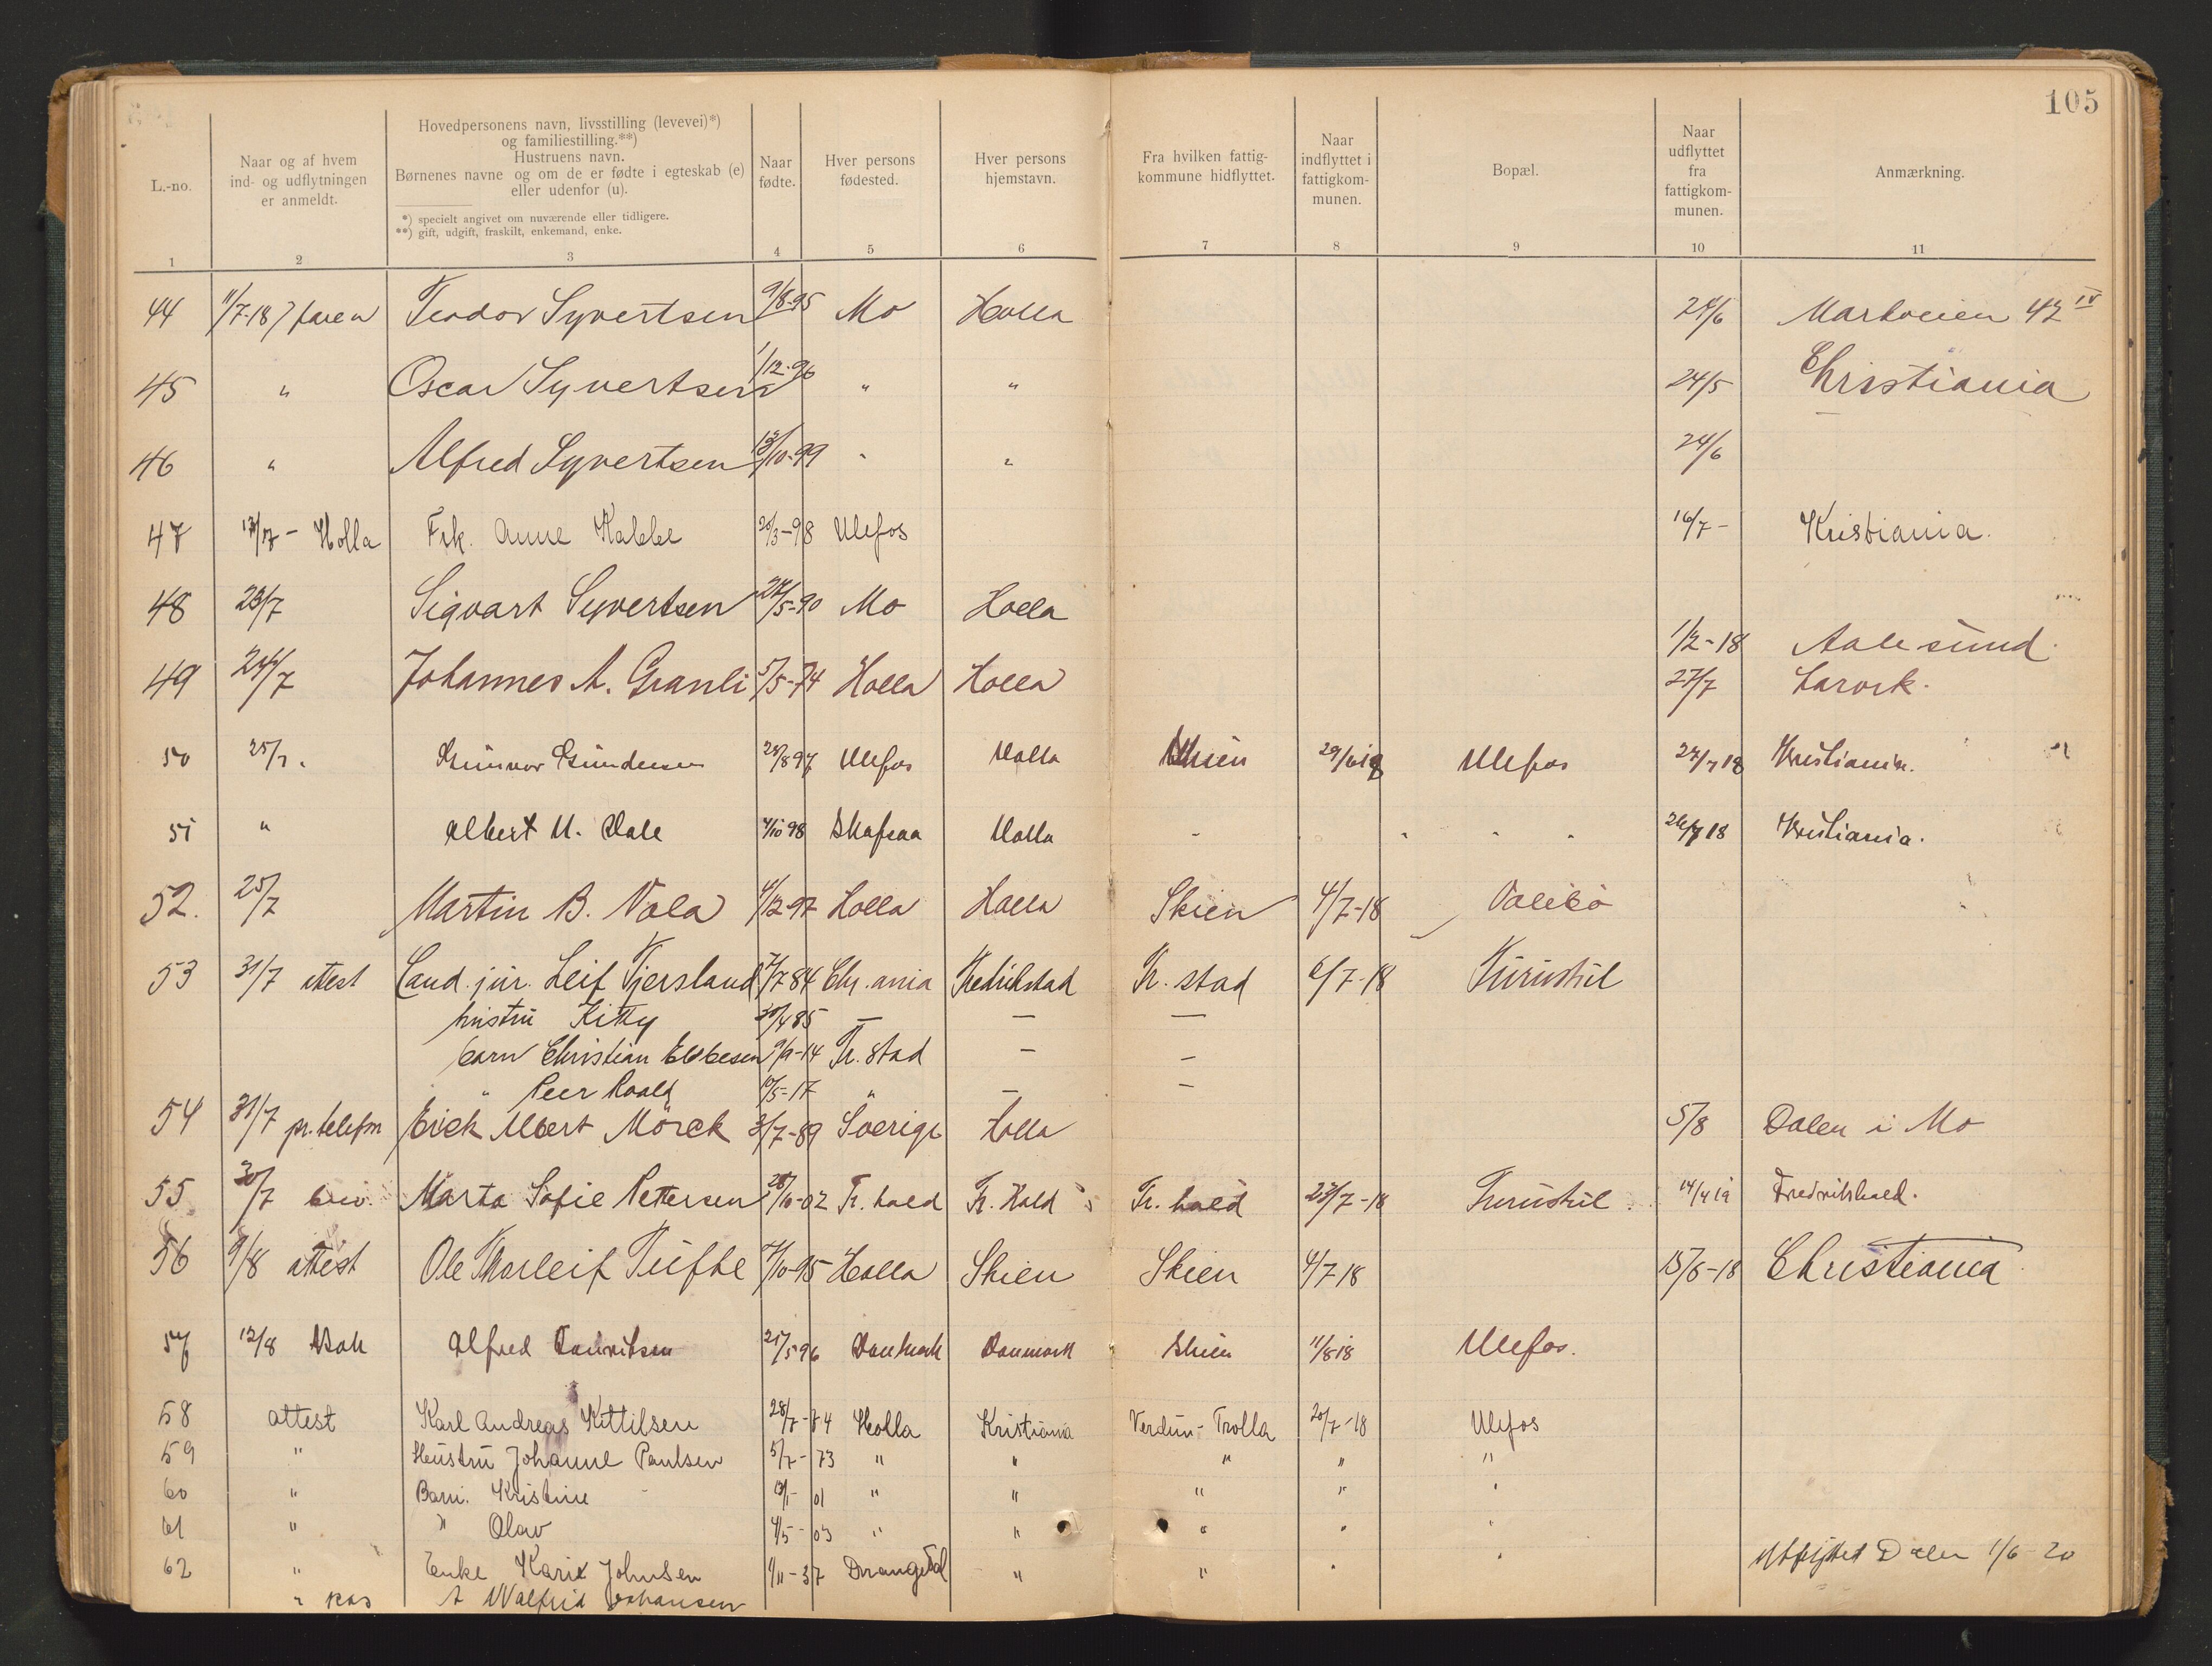 105
L.-no.
Naar og af hvem ind- og udflytningen er anmeldt.
Hovedpersonens navn, livsstilling (levevei)*) og familiestilling.**)
Hustruens navn.
Børnenes navne og om de er fødte i egteskab (e) eller udenfor (u).
*) specielt angivet om nuværende eller tidligere.
**) gift, udgift, fraskilt, enkemand, enke.
Naar fødte.
Hver persons fødested.
Hver persons hjemstavn.
Fra hvilken fattigkommune hidflyttet.
Naar indflyttet i fattigkommunen.
Bopæl.
Naar udflyttet fra fattigkommunen.
Anmærkning.
1 2 3 4 5 6 7 8 9 10 11
44 11/7-18 faren Teodor Syvertsen 9/8-95 Mo Holla 24/6 Markveien 42 IV
45 " Oscar Syvertsen 1/12-96 " " 24/5 Christiania
46 " Alfred Syvertsen 13/10-99 " " 24/6
47 13/7 - Holla Frk. Anne Kabbe 20/3-98 Ulefos 16/7 - Kristiania.
48 23/7 Sigvart Syvertsen 24/5-90 Mo Holla 1/2-18 Aalesund.
49 24/7 Johannes A. Granli 5/5-74 Holla Holla 27/7 Larvik.
50 25/7. Gunvor Gundersen 28/8 97 Ulefos Holla Skien 29/6 18 Ulefos 27/7 18 Kristiania.
51 " Albert H. Dale 4/10 98 Skafsaa Holla - " " " " 26/7 18 Kristiania.
52. 25/7 Martin B. Vala 4/12-97 Holla Holla Skien 4/7-18 Valebø
53 31/7 attest Cand. jur. Leif Fjersland 7/7 84 Chr.ania Fredrikstad Fr. stad 6/7-18 Furuhul
hustru Kitty 20/4 85 — — —
barn Christian Ebbesen 9/9-14 Fr. stad — —
" Peer Roald 10/5-17 " — —
54 31/7 pr. telefon Erick Albert Mörck 3/7-89 Sverige Holla 5/8 Dalen i Mo
55 30/7 brev. Marta Sofie Pettersen 28/10-02 Fr. hald Fr. Hald Fr. hald 23/7-18 Furuhul 14/4 19 Fredrikshald.
56 9/8 attest Ole Thorleif Tufte 7/10-95 Holla Skien Skien 4/7 18 15/8-18 Christiania
57 12/8 Bok Alfred Lauritsen 21/5 96 Danmark Danmark Skien 11/8 18 Ulefos.
58 attest Karl Andreas Kittilsen 28/7-74 Holla Kristiania Verdun-Trolla 20/7-18 Ulefos
59 " Hustru Johanne Paulsen 5/7-73 " " " " "
60 " Barn. Kristine 01 " " " " "
61 " " Olav 4/5-03 " " " " "
62 " Enke Kari Johnsen 1/11-37 Drangedal " " " " Utflyttet Dalen 1/6-20
" pas A Walfrid Johansen